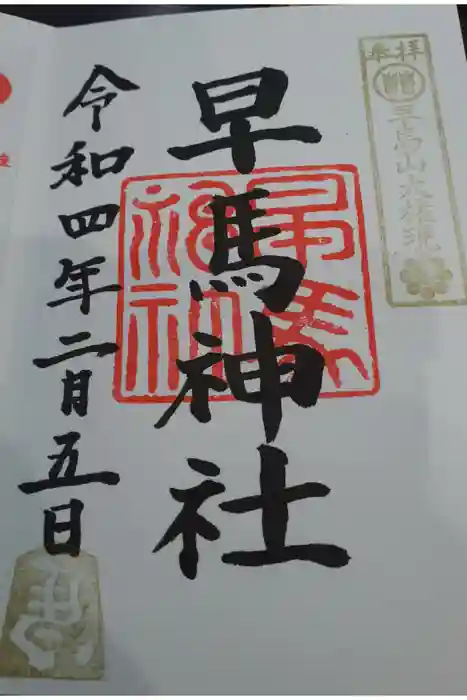 奉拝
早馬神社
早馬神社
令和四年二月五日